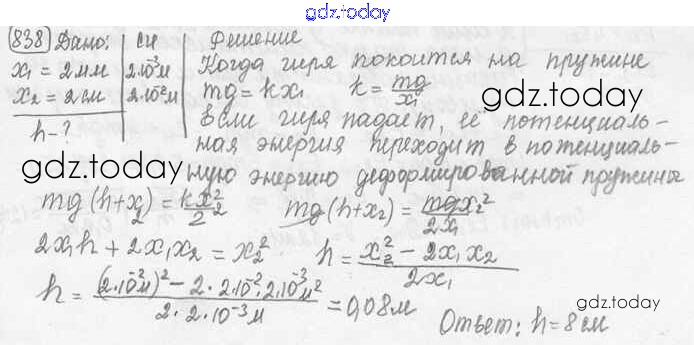 gdz.today
838 Дано: СИ Решение
x₁ = 2 мм 2·10⁻³ м Когда гиря покоится на пружине
x₂ = 2 см 2·10⁻² м mg = kx₁ k = mg/x₁
gdz.today
h - ? Если гиря падает, её потенциаль-
ная энергия переходит в потенциаль-
gdz.today
ную энергию деформированной пружины
mg(h+x₂) = kx₂²/2 mg(h+x₂) = mgx₂²/2x₁
2x₁h + 2x₁x₂ = x₂² h = (x₂² - 2x₁x₂)/2x₁
h = ((2·10⁻² м)² - 2·2·10⁻²·2·10⁻³ м²)/(2·2·10⁻³ м) = 0,08 м
gdz.today
Ответ: h = 8 см